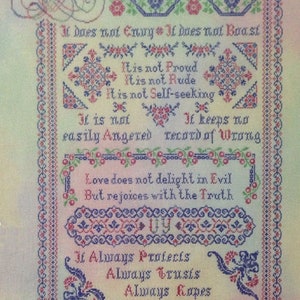 It does not Envy It does not Boast
It is not Proud
It is not Rude
It is not Self-seeking
It is not It keeps no
easily Angered record of Wrong
Love does not delight in Evil
But rejoices with the Truth
It Always Protects
Always Trusts
Always Hopes